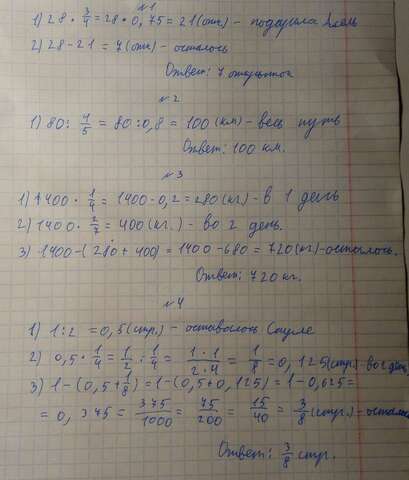 №1
1) 28 · 3/4 = 28 · 0,75 = 21 (отк) - подарила Аня
2) 28 - 21 = 7 (отк) - осталось
Ответ: 7 открыток
№2
1) 80 : 4/5 = 80 : 0,8 = 100 (км) - весь путь
Ответ: 100 км.
№3
1) 1400 · 1/4 = 1400 · 0,2 = 280 (кг) - в 1 день
2) 1400 · 2/7 = 400 (кг.) - во 2 день.
3) 1400 - (280 + 400) = 1400 - 680 = 720 (кг) - осталось.
Ответ: 720 кг.
№4
1) 1 : 2 = 0,5 (стр.) - оставалось
2) 0,5 · 1/4 = 1/2 · 1/4 = 1·1/2·4 = 1/8 = 0,125 (стр) во 2 день
3) 1 - (0,5 + 1/8) = 1 - (0,5 + 0,125) = 1 - 0,625 =
= 0,375 = 375/1000 = 75/200 = 15/40 = 3/8 (стр.) - остал
Ответ: 3/8 стр.